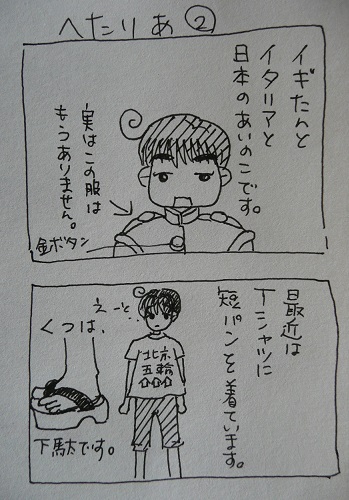 へたりあ②
イギたんと
イタリアと
日本のあいのこです。
実はこの服は
もうありません。
金ボタン
最近は
Tシャツに
短パンを着ています。
えーと、
くつは、
北京
五輪
下駄です。